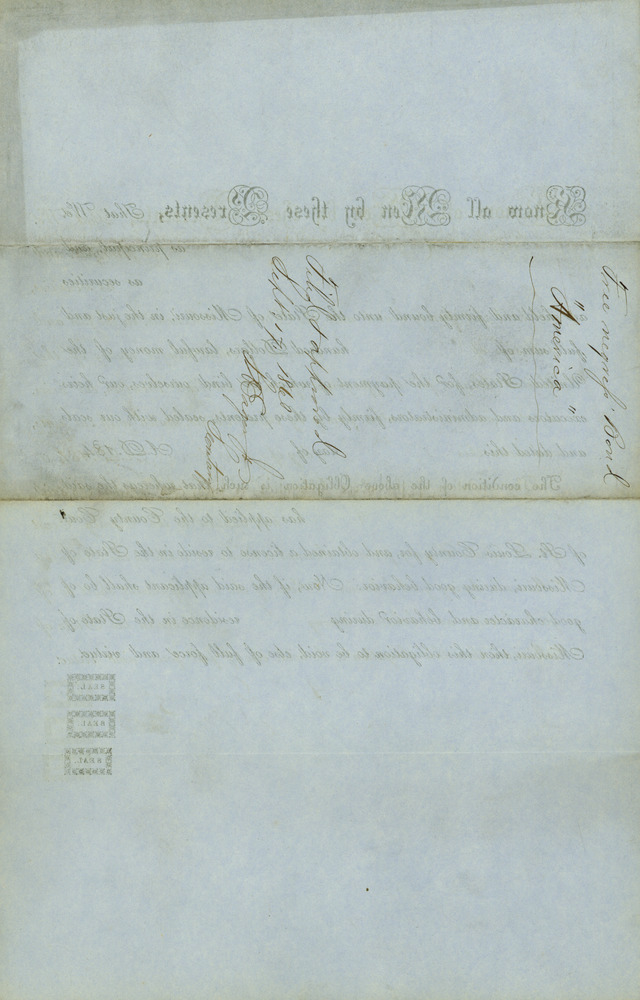 Free negro's Bond
of
"America"
Filed & approved
Sept 18 1846
Know all Men by these Presents, That We
as principal, and
as securities
held and firmly bound unto the State of Missouri, in the just and
sum of hundred Dollars, lawful money of the
United States, for the payment of which we bind ourselves, our heirs
executors and administrators, firmly by these presents, sealed with our seals
and dated this day of A. D. 184
The condition of the above Obligation is such, that whereas the said
has applied to the County Court
of St. Louis County for, and obtained a license to reside in the State of
Missouri, during good behavior. Now, if the said applicant shall be of
good character and behavior during residence in the State of
Missouri, then this obligation to be void, else of full force and virtue.
SEAL
SEAL
SEAL